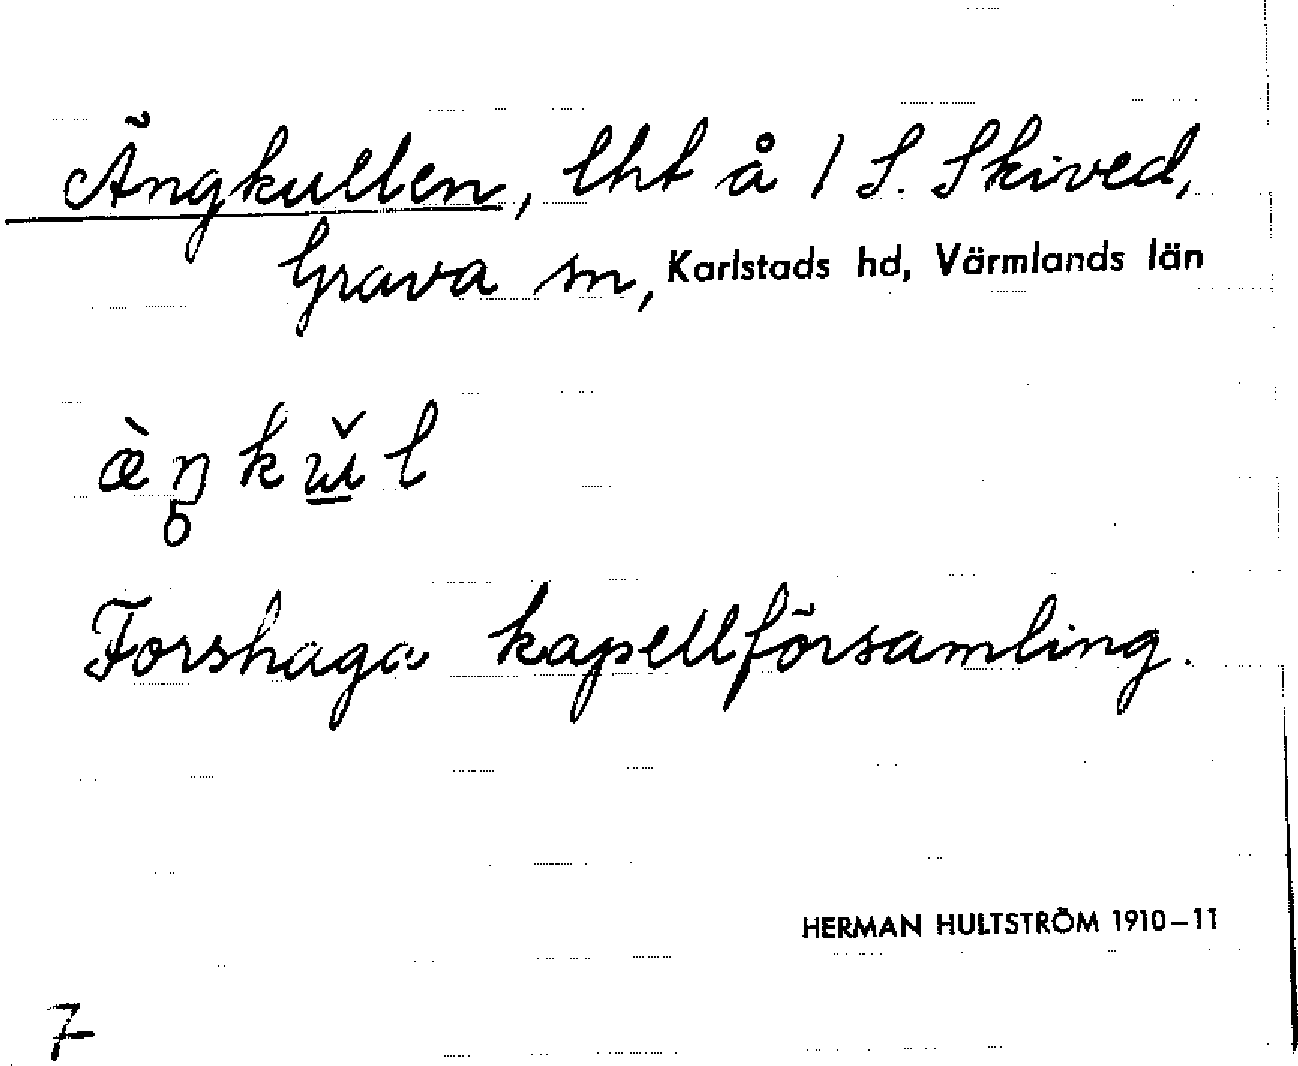 Ängkullen, lht å 1 S. Skived,
Grava sn, Karlstads hd, Värmlands län
Forshaga kapellförsamling.
HERMAN HULTSTRÖM 1910–11
7